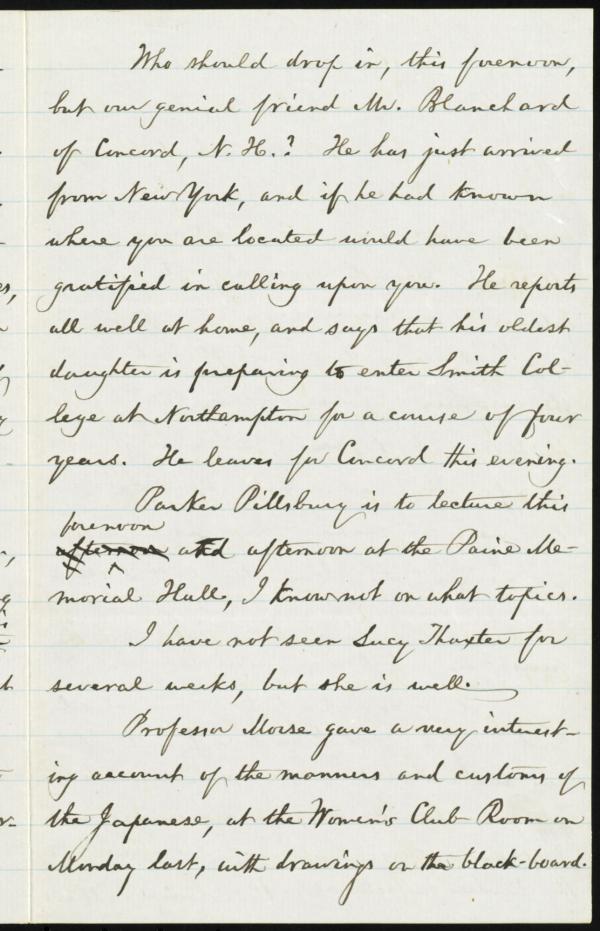 Who should drop in, this forenoon,
but our genial friend Mr. Blanchard
of Concord, N. H.? He has just arrived
from New York, and if he had known
where you are located would have been
gratified in calling upon you. He reports
all well at home, and says that his oldest
daughter is preparing to enter Smith Col-
lege at Northampton for a course of four
years. He leaves for Concord this evening.
Parker Pillsbury is to lecture this
forenoon
afternoon and afternoon at the Paine Me-
morial Hall, I know not on what topics.
I have not seen Lucy Thaxter for
several weeks, but she is well.
Professor Morse gave a very interest-
ing account of the manners and customs of
the Japanese, at the Women's Club Room on
Monday last, with drawings on the black-board.